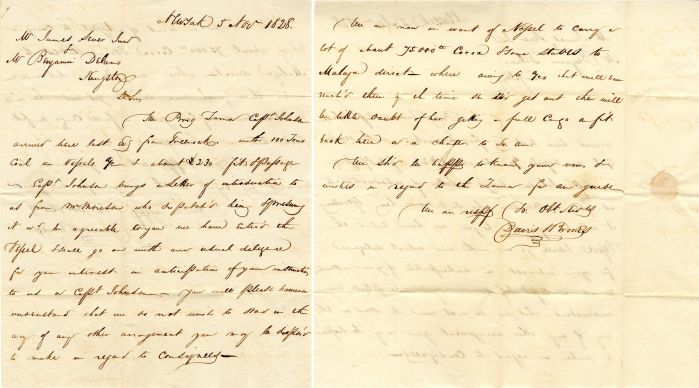 NYork 5 Novr 1828.
Mr James Sever Junr
&
Mr Benjamin Delano
Kingston
D Sirs
The Brig Lamar Captn Johnson
arrived here last            from Greenock with 100 Tons
Coal on Vessels      & about £230 fr     & passage
Captn Johnson brings a Letter of introduction to
us from Mr Morrison who dispatch'd him
it wd be agreeable to you we have           the
Vessel shall go on with our usual diligence
for your interest in anticipation of your instructions
to us or Captn Johnson – You will please however
understand that we do not wish to stand in the
way of any other arrangement you may be dispos'd
to make in regard to Consignees –
We are now in want of Vessel to carry a
lot of about 75.000         Staves to
Malaga direct – where owing to           she will
reach there by the time            get out there will
be little doubt of her getting a full Cargo a frt
back here or a charter to
We shd be happy to know your views &
wishes in regard to the Lamar for our guide
We are respy Dr Obt Servts
Davis & Brooks